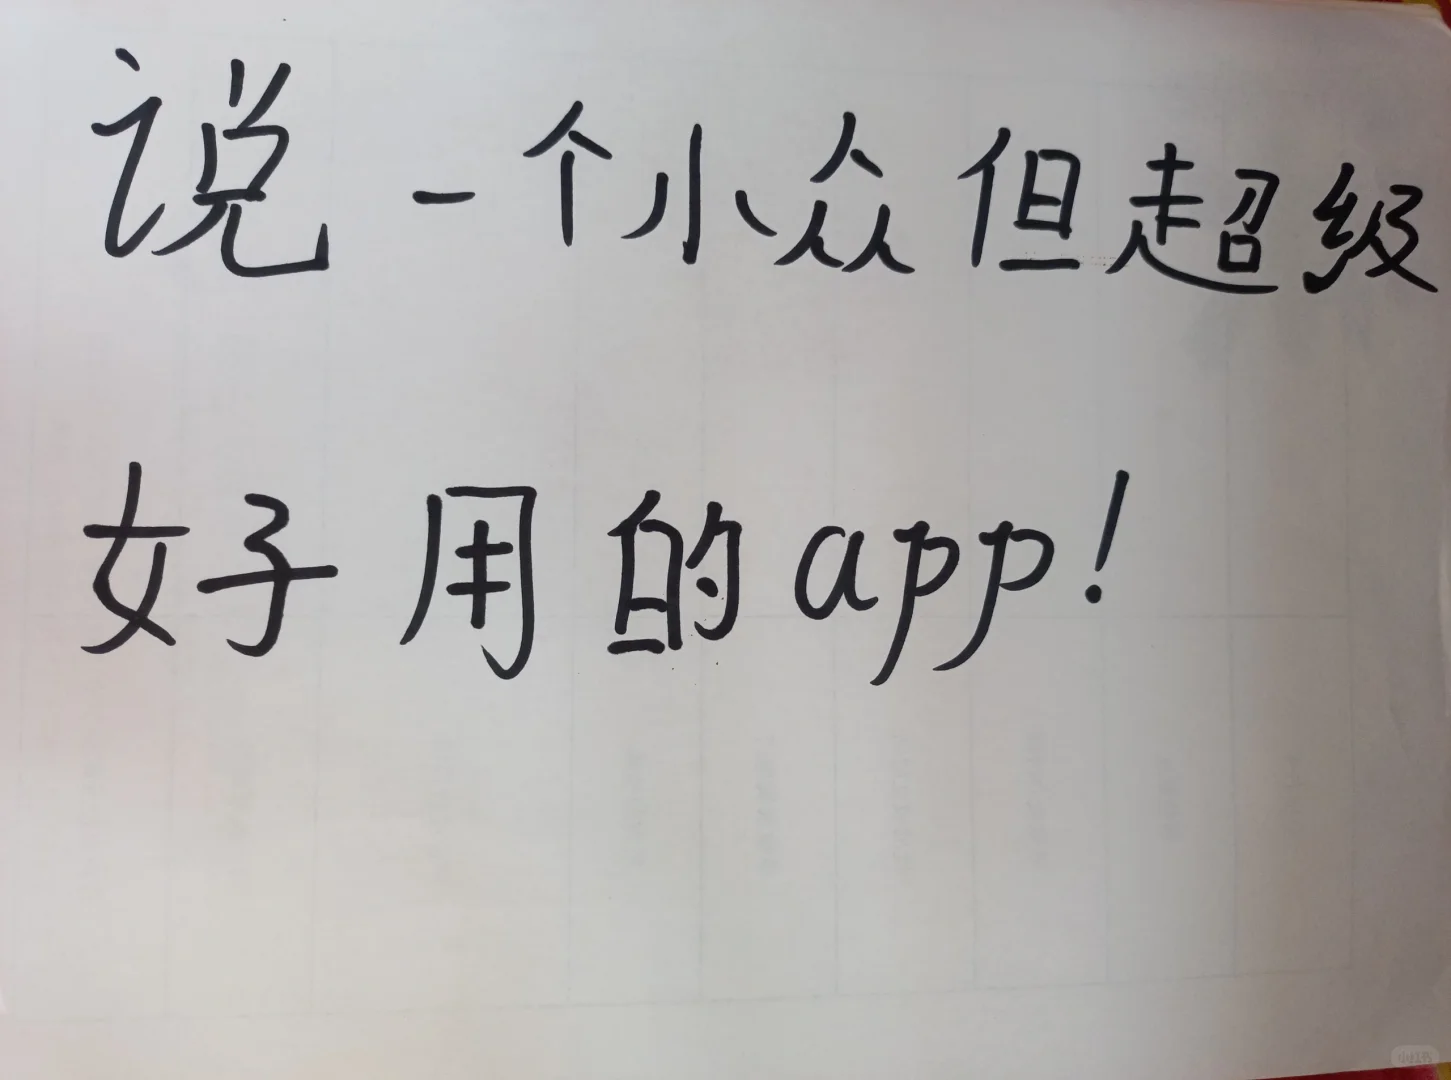 说一个小众但超级
好用的app!
小红书